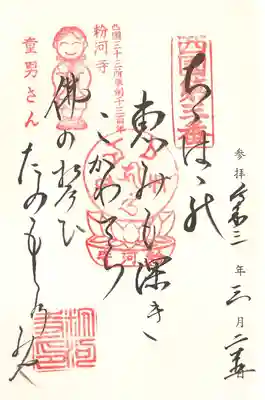 参拝 令和三年三月
西国第三番
ちゝはゝの
恵みも深き
こかわてら
佛の誓ひ
たのもしの身や
西国三十三所草創千三百年
粉河寺
童男さん